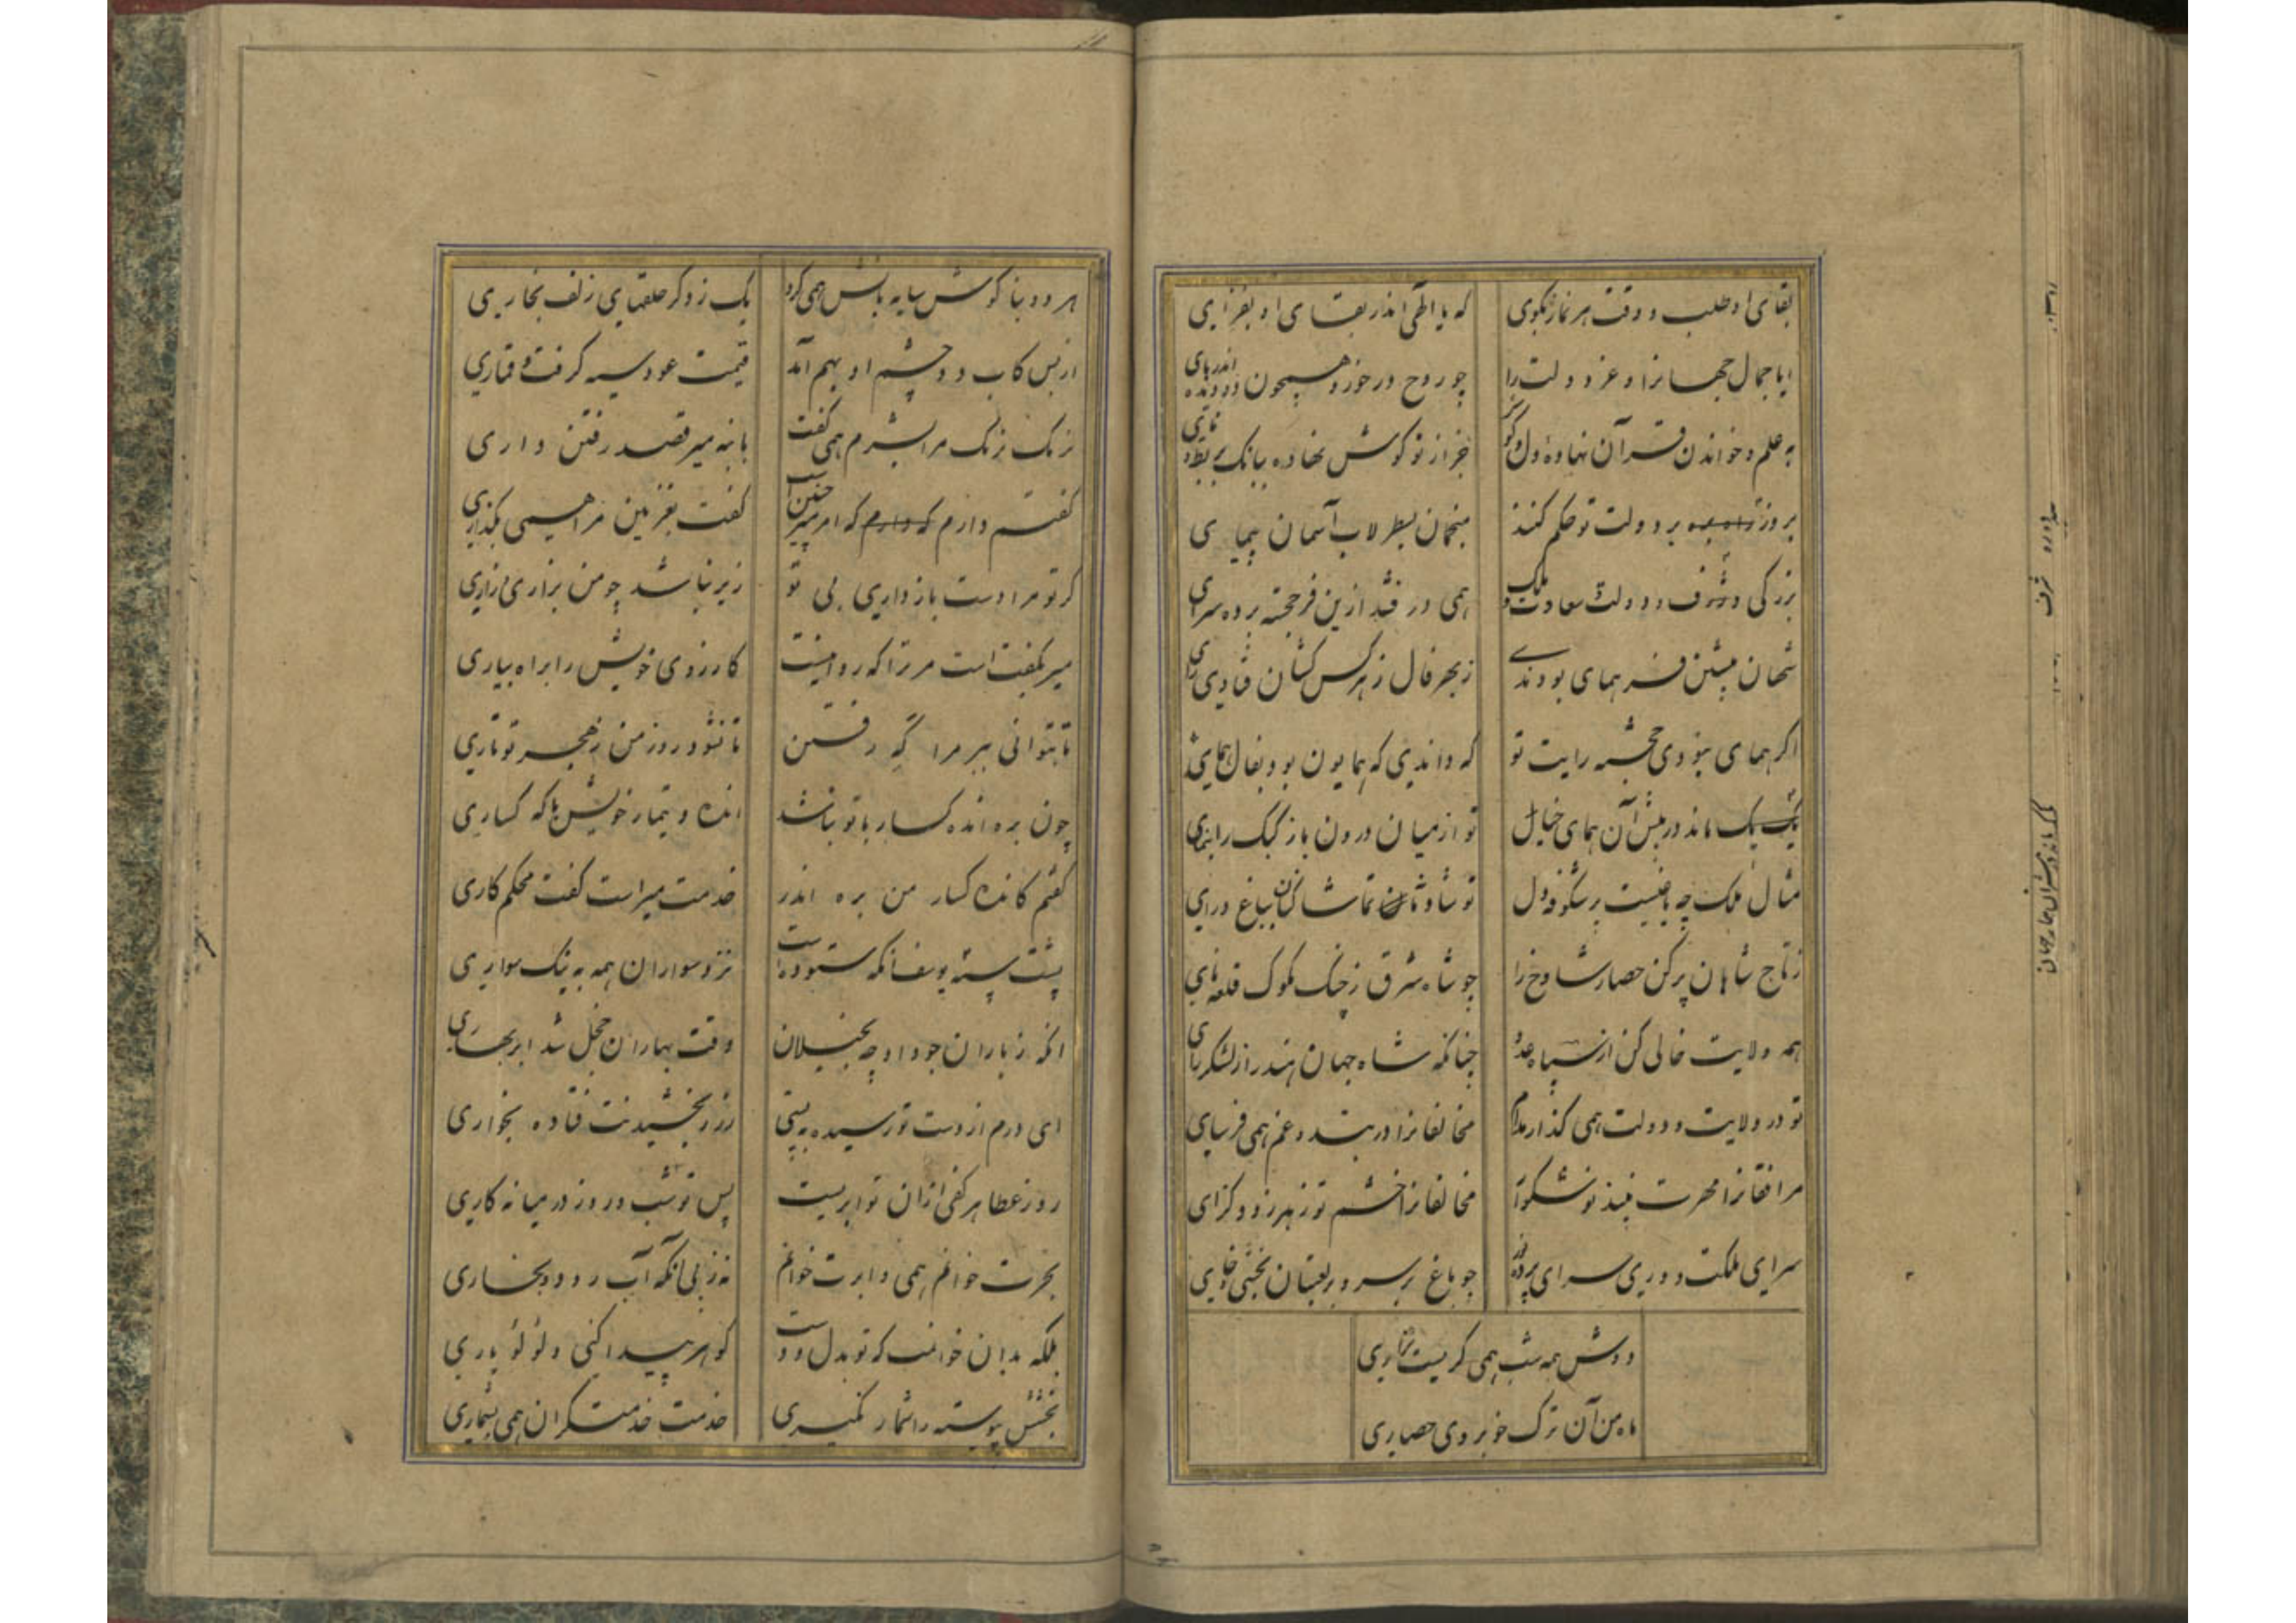 بقای او طلب و وقت هر نماز بگوی که یا الهی اندر بقای او بفزای
ایا جمال جهانرا و عز و دولت را چو روح درخور و همچون دو دیده اندربای
به علم و خواندن قرآن نهاده دل و گوش جز از تو گوش نهاده ببانک بربط و نای
بروز بر دولت تو حکم کنند منجمان بسطرلاب آسمان پیمای
بزرگی و شرف و دولت و سعادت و ملک همی درفشد ازین فرخجسته پرده سرای
شهان پیشین فر همای بودندی زبهر فال زهر کس کشان فتادی رای
اگر همای نبودی خجسته رایت تو که داندی که همایون بود بفال همای
یک یک ماند در پیش آن همای خیال تو از میان درون باز کبک را بنمای
مثال ملک چه باغیست پر شکوفه و گل تو شاد و تماشا کنان بباغ درآی
زتاج شاهان پر کن حصار شادخ را چو شاه شرق ز جنگ ملوک قلعه نای
همه ولایت خالی کن از سپاه عدو چنانکه شاه جهان هند را ز لشکر رای
تو در ولایت و دولت همی گذار مدام مخالفانرا در بند و غم همی فرسای
مرافقانرا مهرت نبیذ نوش گوار مخالفانرا خشم تو زهر زود گزای
سرای ملکت و دوری سرای پرده چو باغ پر سرو و پر لعبتان
دوش همه شب همی گریست بزاری
ماه من آن ترک خوبروی حصاری
هر دو بناگوش سایه بانش همی کرد یک زدگر حلقهای زلف بخاری
از بس کاب دو چشم او بهم آمد قیمت عود سیه گرفت قماری
نرمک نرمک مرا بشرم همی گفت با بنه میر قصد رفتن داری
گفتم دارم که امر میر چنین است گفت بغزنین مرا همی بگذاری
گر تو مرا دست بازداری بی تو زیر نباشد چو من بزاری و زاری
میر نگفت است مر ترا که روا نیست کارزوی خویش را براه بیاری
تا بتوانی ببر مرا گه رفتن تا نشود روز من زهجر تو تاری
چون بره انده گسار با تو نباشد انده و تیمار خویش با که گساری
گفتم کانده گسار من بره اندر خدمت میراست گفت محکم کاری
پشت سپه یوسف آنکه ستوده است نزد سواران همه به نیک سواری
آنکه ز باران جود او چه بخیلان وقت بهاران خجل شد ابر بهاری
ای درم از دست تو رسیده به پستی زر ز بخشیدنت فتاده بخواری
روز عطا هر کفی ازان تو ابریست پس تو شب و روز در میانه کاری
بحرت خوانم همی و ابرت خوانم نه ز پی آنکه آب رود و بخاری
بلکه بدان خوانمت که تو بدل و دست گوهر پیدا کنی و لؤلؤ باری
بخشش پیوسته را شمار نگیری خدمت خدمتگران همی بشماری